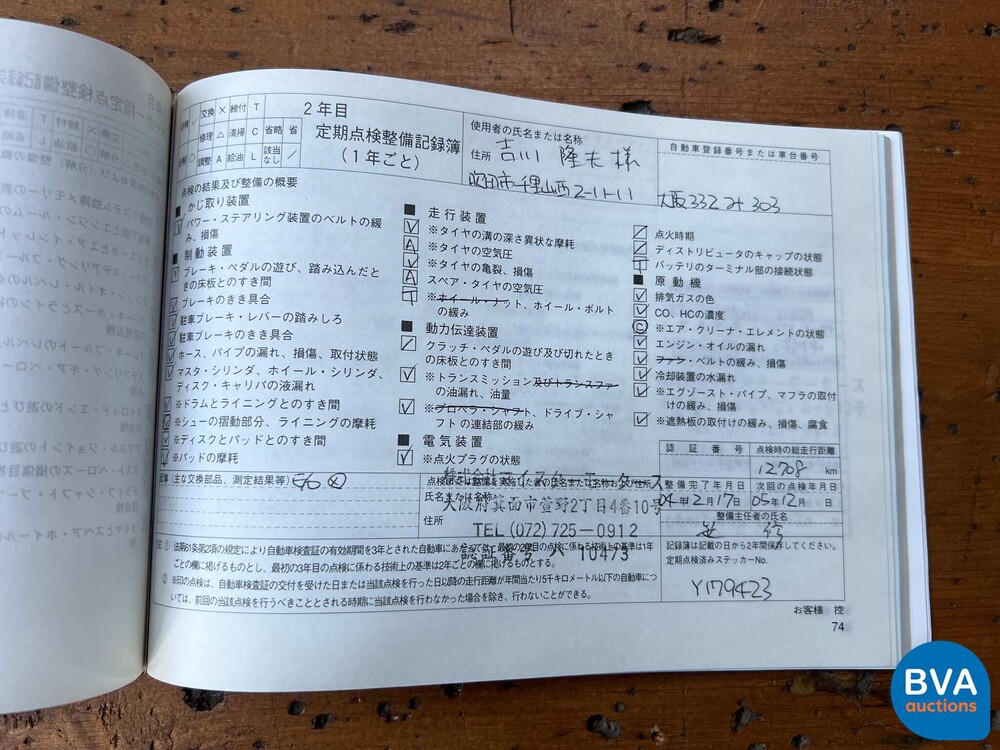 点検 レ 交換 × 締付 T
修理 △ 清掃 C 省略 省
分解 ○ 調整 A 給油 L 該当なし ／
2年目
定期点検整備記録簿
(1年ごと)
使用者の氏名または名称
吉川 隆夫 様
住所
吹田市千里山西2-11-11
自動車登録番号または車台番号
大阪332 303
点検の結果及び整備の概要
■ かじ取り装置
パワー・ステアリング装置のベルトの緩
み、損傷
■ 制動装置
ブレーキ・ペダルの遊び、踏み込んだと
きの床板とのすき間
ブレーキのきき具合
駐車ブレーキ・レバーの踏みしろ
駐車ブレーキのきき具合
ホース、パイプの漏れ、損傷、取付状態
マスタ・シリンダ、ホイール・シリンダ、
ディスク・キャリパの液漏れ
※ドラムとライニングとのすき間
※シューの摺動部分、ライニングの摩耗
※ディスクとパッドとのすき間
※パッドの摩耗
■ 走行装置
※タイヤの溝の深さ異状な摩耗
A ※タイヤの空気圧
※タイヤの亀裂、損傷
A スペア・タイヤの空気圧
T ※ホイール・ナット、ホイール・ボルト
の緩み
■ 動力伝達装置
クラッチ・ペダルの遊び及び切れたとき
の床板とのすき間
※トランスミッション及びトランスファ
の油漏れ、油量
※プロペラ・シャフト、ドライブ・シャ
フトの連結部の緩み
■ 電気装置
※点火プラグの状態
点火時期
ディストリビュータのキャップの状態
T バッテリのターミナル部の接続状態
■ 原動機
排気ガスの色
CO、HCの濃度
C ※エア・クリーナ・エレメントの状態
エンジン・オイルの漏れ
ファン・ベルトの緩み、損傷
冷却装置の水漏れ
※エグゾースト・パイプ、マフラの取付
けの緩み、損傷
※遮熱板の取付けの緩み、損傷、腐食
記事(主な交換部品、測定結果等)
氏名または名称
住所
大阪府箕面市萱野2丁目4番10号
TEL (072)725-0912
認証番号 10473
認証番号
点検時の総走行距離
12708 km
整備完了年月日
04年12月17日
次回の点検年月日
05年12月 日
整備主任者の氏名
注) ① 法第61条第2項の規定により自動車検査証の有効期間を3年とされた自動車にあたっては、最初の2年目の点検に係わる技術上の基準は1年
ごとの欄に掲げるものとし、最初の3年目の点検に係わる技術上の基準は2年ごとの欄に掲げるものとする。
② ※印の点検は、自動車検査証の交付を受けた日または当該点検を行った日以降の走行距離が年間当たり5千キロメートル以下の自動車につ
いては、前回の当該点検を行うべきこととされる時期に当該点検を行わなかった場合を除き、行わないことができる。
記録簿は記載の日から2年間保存してください。
定期点検済みステッカーNo.
Y179423
お客様 控
74
BVA
auctions